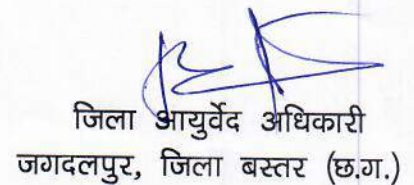 जिला आयुर्वेद अधिकारी
जगदलपुर, जिला बस्तर (छ.ग.)